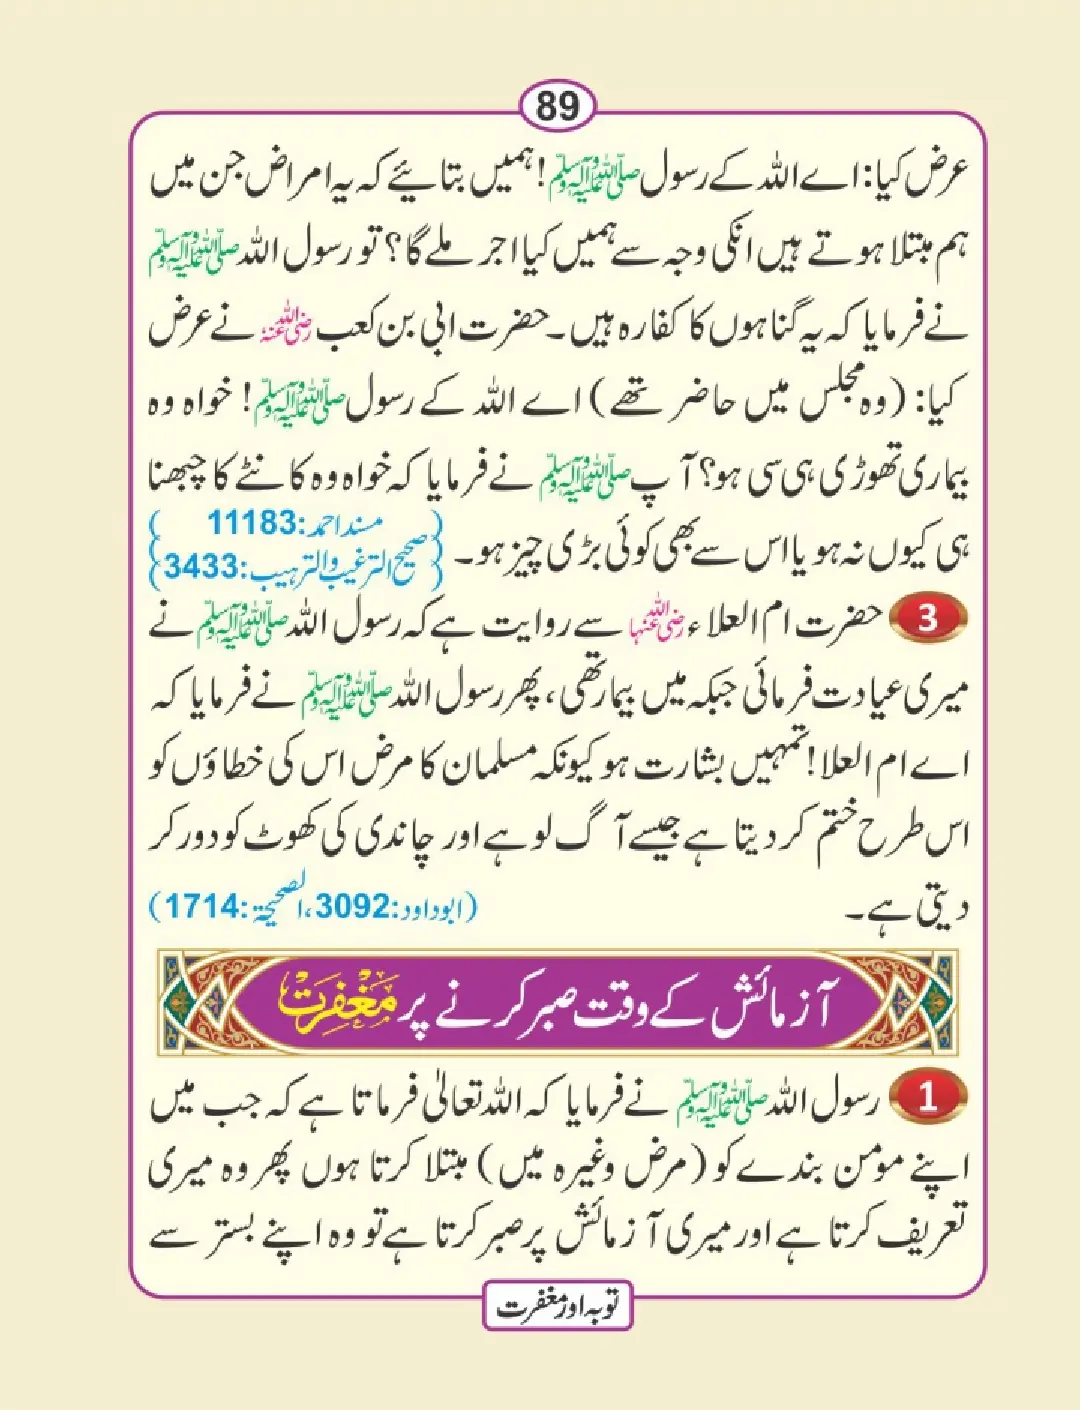 89
عرض کیا: اے اللہ کے رسول صلی اللہ علیہ وآلہ وسلم! ہمیں بتائیے کہ یہ امراض جن میں
ہم مبتلا ہوتے ہیں انکی وجہ سے ہمیں کیا اجر ملے گا؟ تو رسول اللہ صلی اللہ علیہ وآلہ وسلم
نے فرمایا کہ یہ گناہوں کا کفارہ ہیں۔ حضرت ابی بن کعب رضی اللہ عنہ نے عرض
کیا: (وہ مجلس میں حاضر تھے) اے اللہ کے رسول صلی اللہ علیہ وآلہ وسلم! خواہ وہ
بیماری تھوڑی ہی سی ہو؟ آپ صلی اللہ علیہ وآلہ وسلم نے فرمایا کہ خواہ وہ کانٹے کا چبھنا
ہی کیوں نہ ہو یا اس سے بھی کوئی بڑی چیز ہو۔
(مسند احمد: 11183)
{صحیح الترغیب والترہیب: 3433}
3 حضرت ام العلاء رضی اللہ عنہا سے روایت ہے کہ رسول اللہ صلی اللہ علیہ وآلہ وسلم نے
میری عیادت فرمائی جبکہ میں بیمار تھی، پھر رسول اللہ صلی اللہ علیہ وآلہ وسلم نے فرمایا کہ
اے ام العلا! تمہیں بشارت ہو کیونکہ مسلمان کا مرض اس کی خطاؤں کو
اس طرح ختم کر دیتا ہے جیسے آگ لوہے اور چاندی کی کھوٹ کو دور کر
دیتی ہے۔ (ابوداود: 3092، الصحیحۃ: 1714)
آزمائش کے وقت صبر کرنے پر مَغْفِرَتْ
1 رسول اللہ صلی اللہ علیہ وآلہ وسلم نے فرمایا کہ اللہ تعالیٰ فرماتا ہے کہ جب میں
اپنے مومن بندے کو (مرض وغیرہ میں) مبتلا کرتا ہوں پھر وہ میری
تعریف کرتا ہے اور میری آزمائش پر صبر کرتا ہے تو وہ اپنے بستر سے
توبہ اور مغفرت